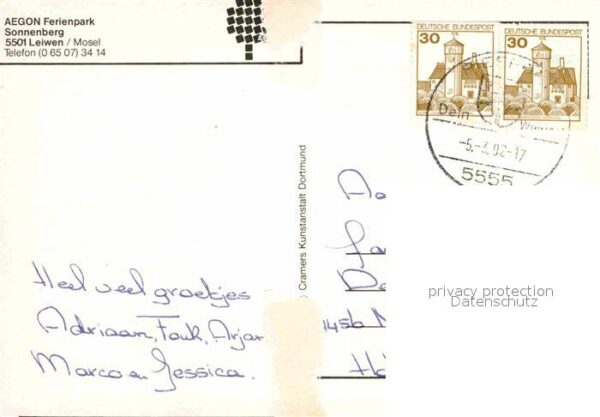 AEGON Ferienpark
Sonnenberg
5501 Leiwen / Mosel
Telefon (0 65 07) 34 14
DEUTSCHE BUNDESPOST
30
DEUTSCHE BUNDESPOST
30
Dein
-5.-3.92-17
5555
Cramers Kunstanstalt Dortmund
Heel veel groetjes
Adriaan, Fouk, Arjan
Marco en Jessica.
privacy protection
Datenschutz